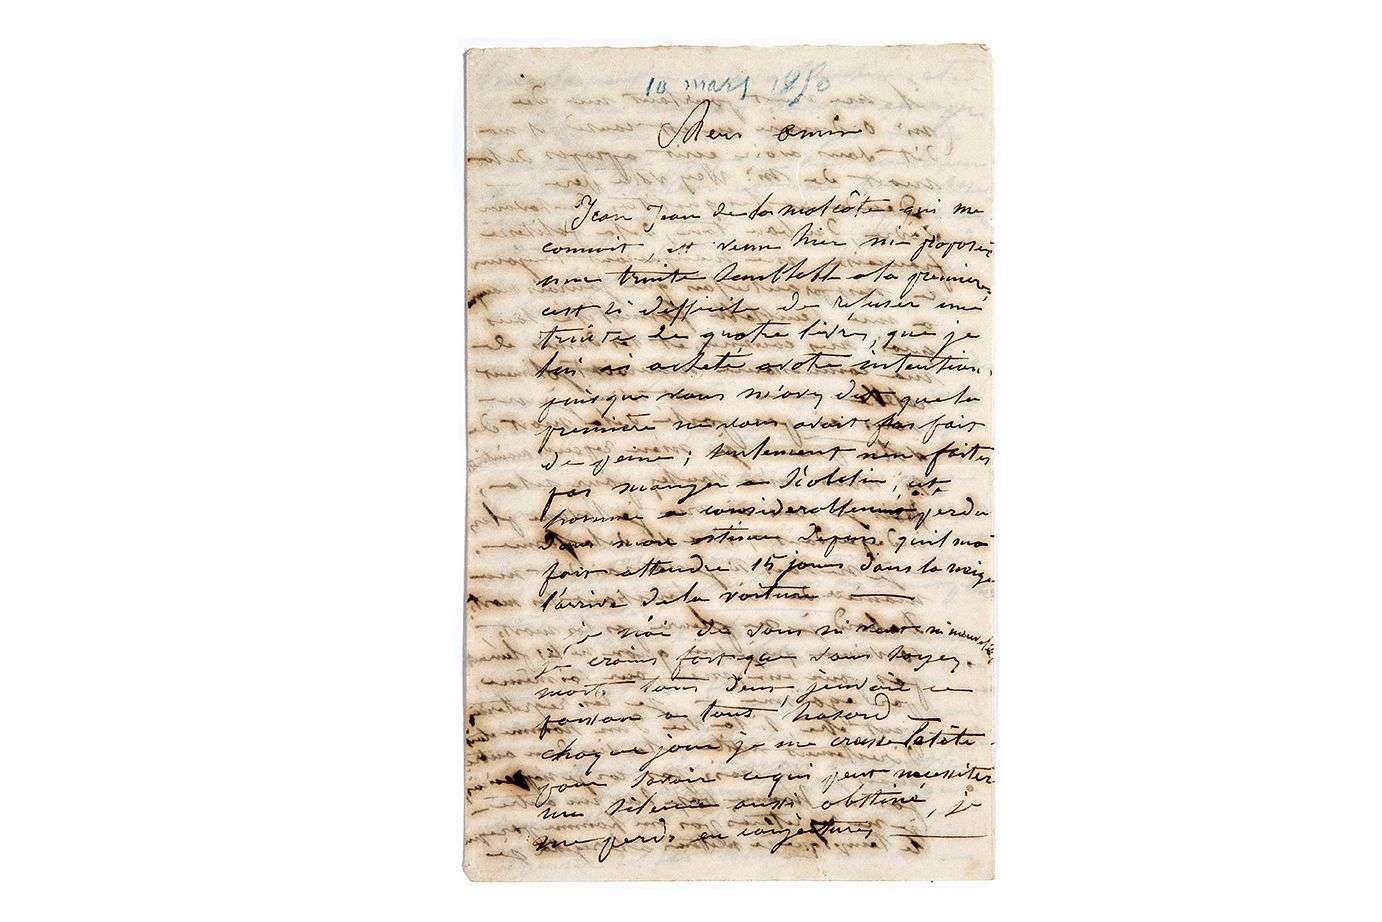 10 mars 1850
Mes amis
Jean Jean de la malcôte qui me
connoit, est venu hier me proposer
une truite semblable a la premiere
cest si difficile de refuser une
truite de quatre livres, que je
lui ai acheté a votre intention,
puisque vous m'avez dit que la
premiere ne vous avait pas fait
de peine; seulement n'en faites
pas manger a ; cet
homme a considerablement perdu
dans mon estime depuis qu'il m'a
fait attendre 15 jours dans la neige
l'arrivé de la voiture —
je n'ai de vous ni vent ni nouvelles
je crains fort que vous soyez
morts tous deux, j'envoie ce
poisson a tous hasard —
chaque jour je me creuse la tête
pour savoir ce qui peut necessiter
un silence aussi obstiné, je
me perds en conjectures —